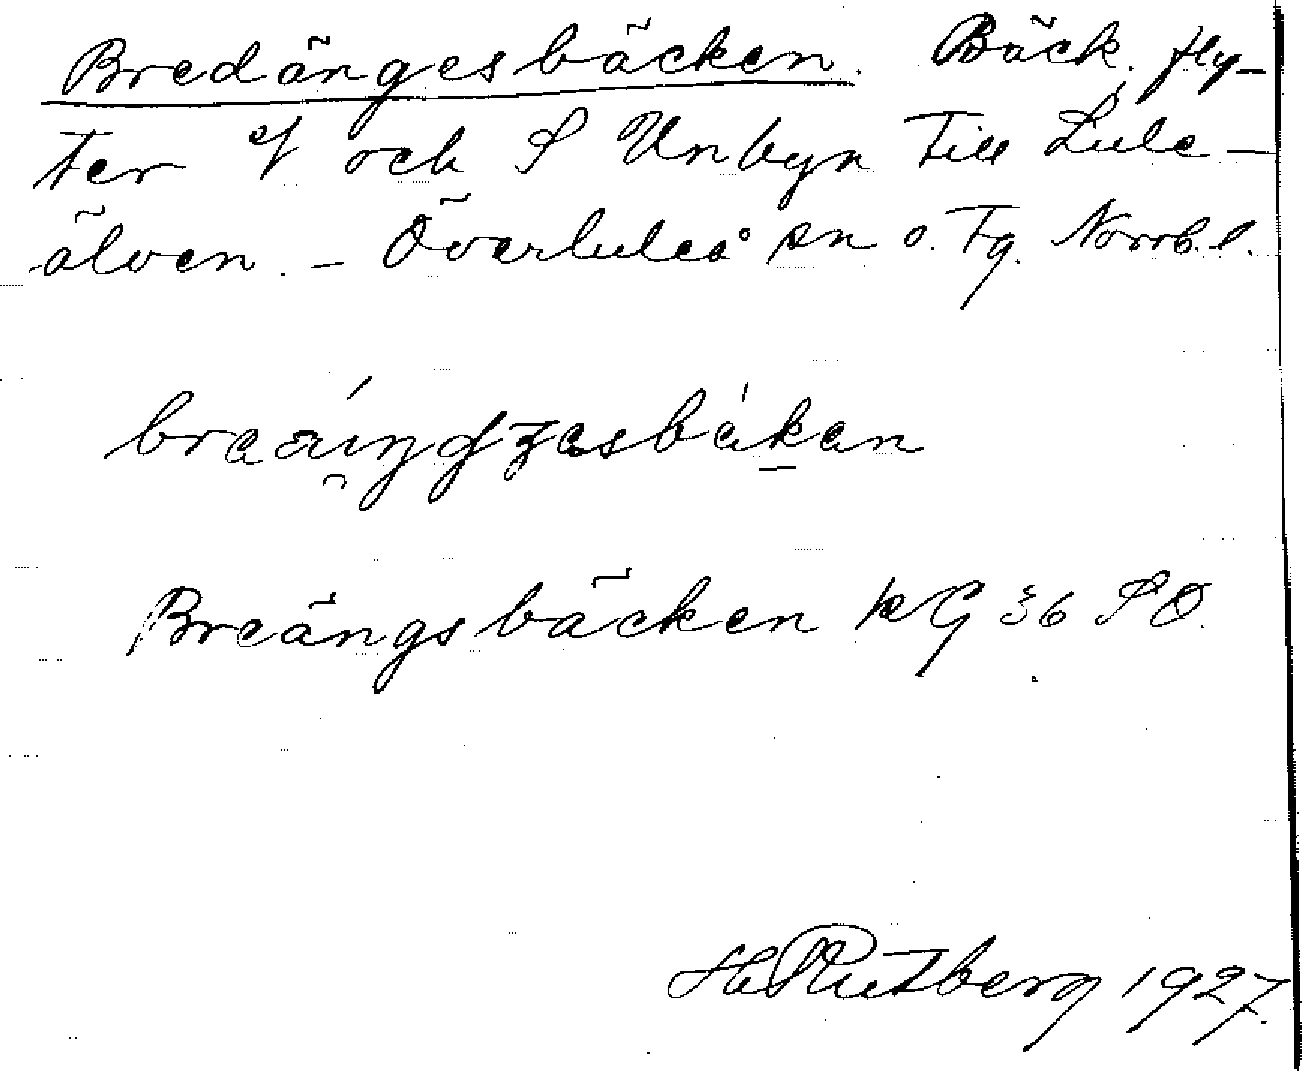 Bredängesbäcken. Bäck, fly-
ter V och S Unbyn till Lule-
älven. - Överluleå sn o. Tg. Norrb. l.
Breängsbäcken kG 36 SO.
H Rutberg 1927.